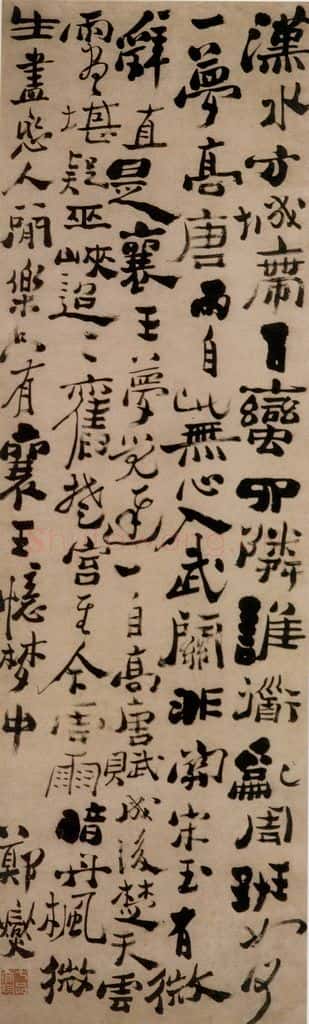 漢水方城肅百蠻四隣誰道亂周班如何
一夢高唐雨自此無心入武關非關宋玉有微
辭直是襄王夢覺遲一自高唐賦成後楚天雲
雨尽堪疑巫峽迢〻舊楚宮至今雲雨暗丹楓微
生盡戀人間樂只有襄王憶梦中
鄭燮